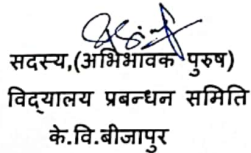 सदस्य,(अभिभावक पुरुष)
विद्यालय प्रबन्धन समिति
के.वि.बीजापुर